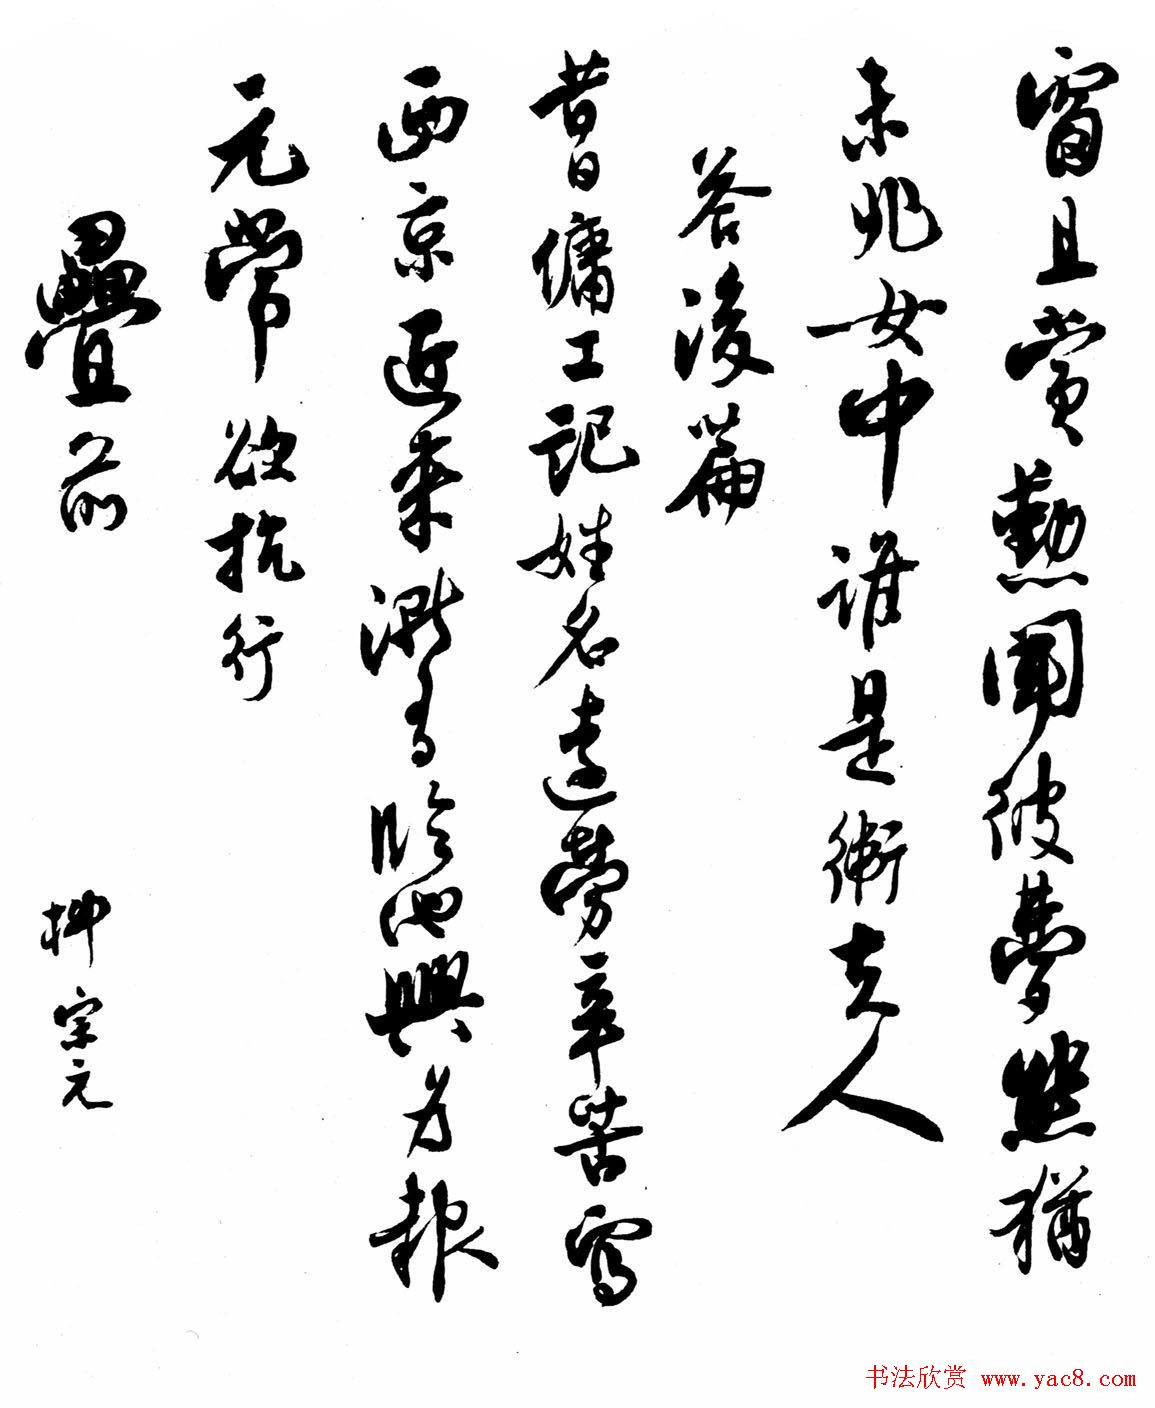 窗且賞懃聞彼夢熊猶
未兆女中誰是衛夫人
答後篇
昔日傭工記姓名遠勞辛苦寫
西京近來漸有臨池興為報
元常欲抗行
疊前
柳宗元
书法欣赏 www.yac8.com